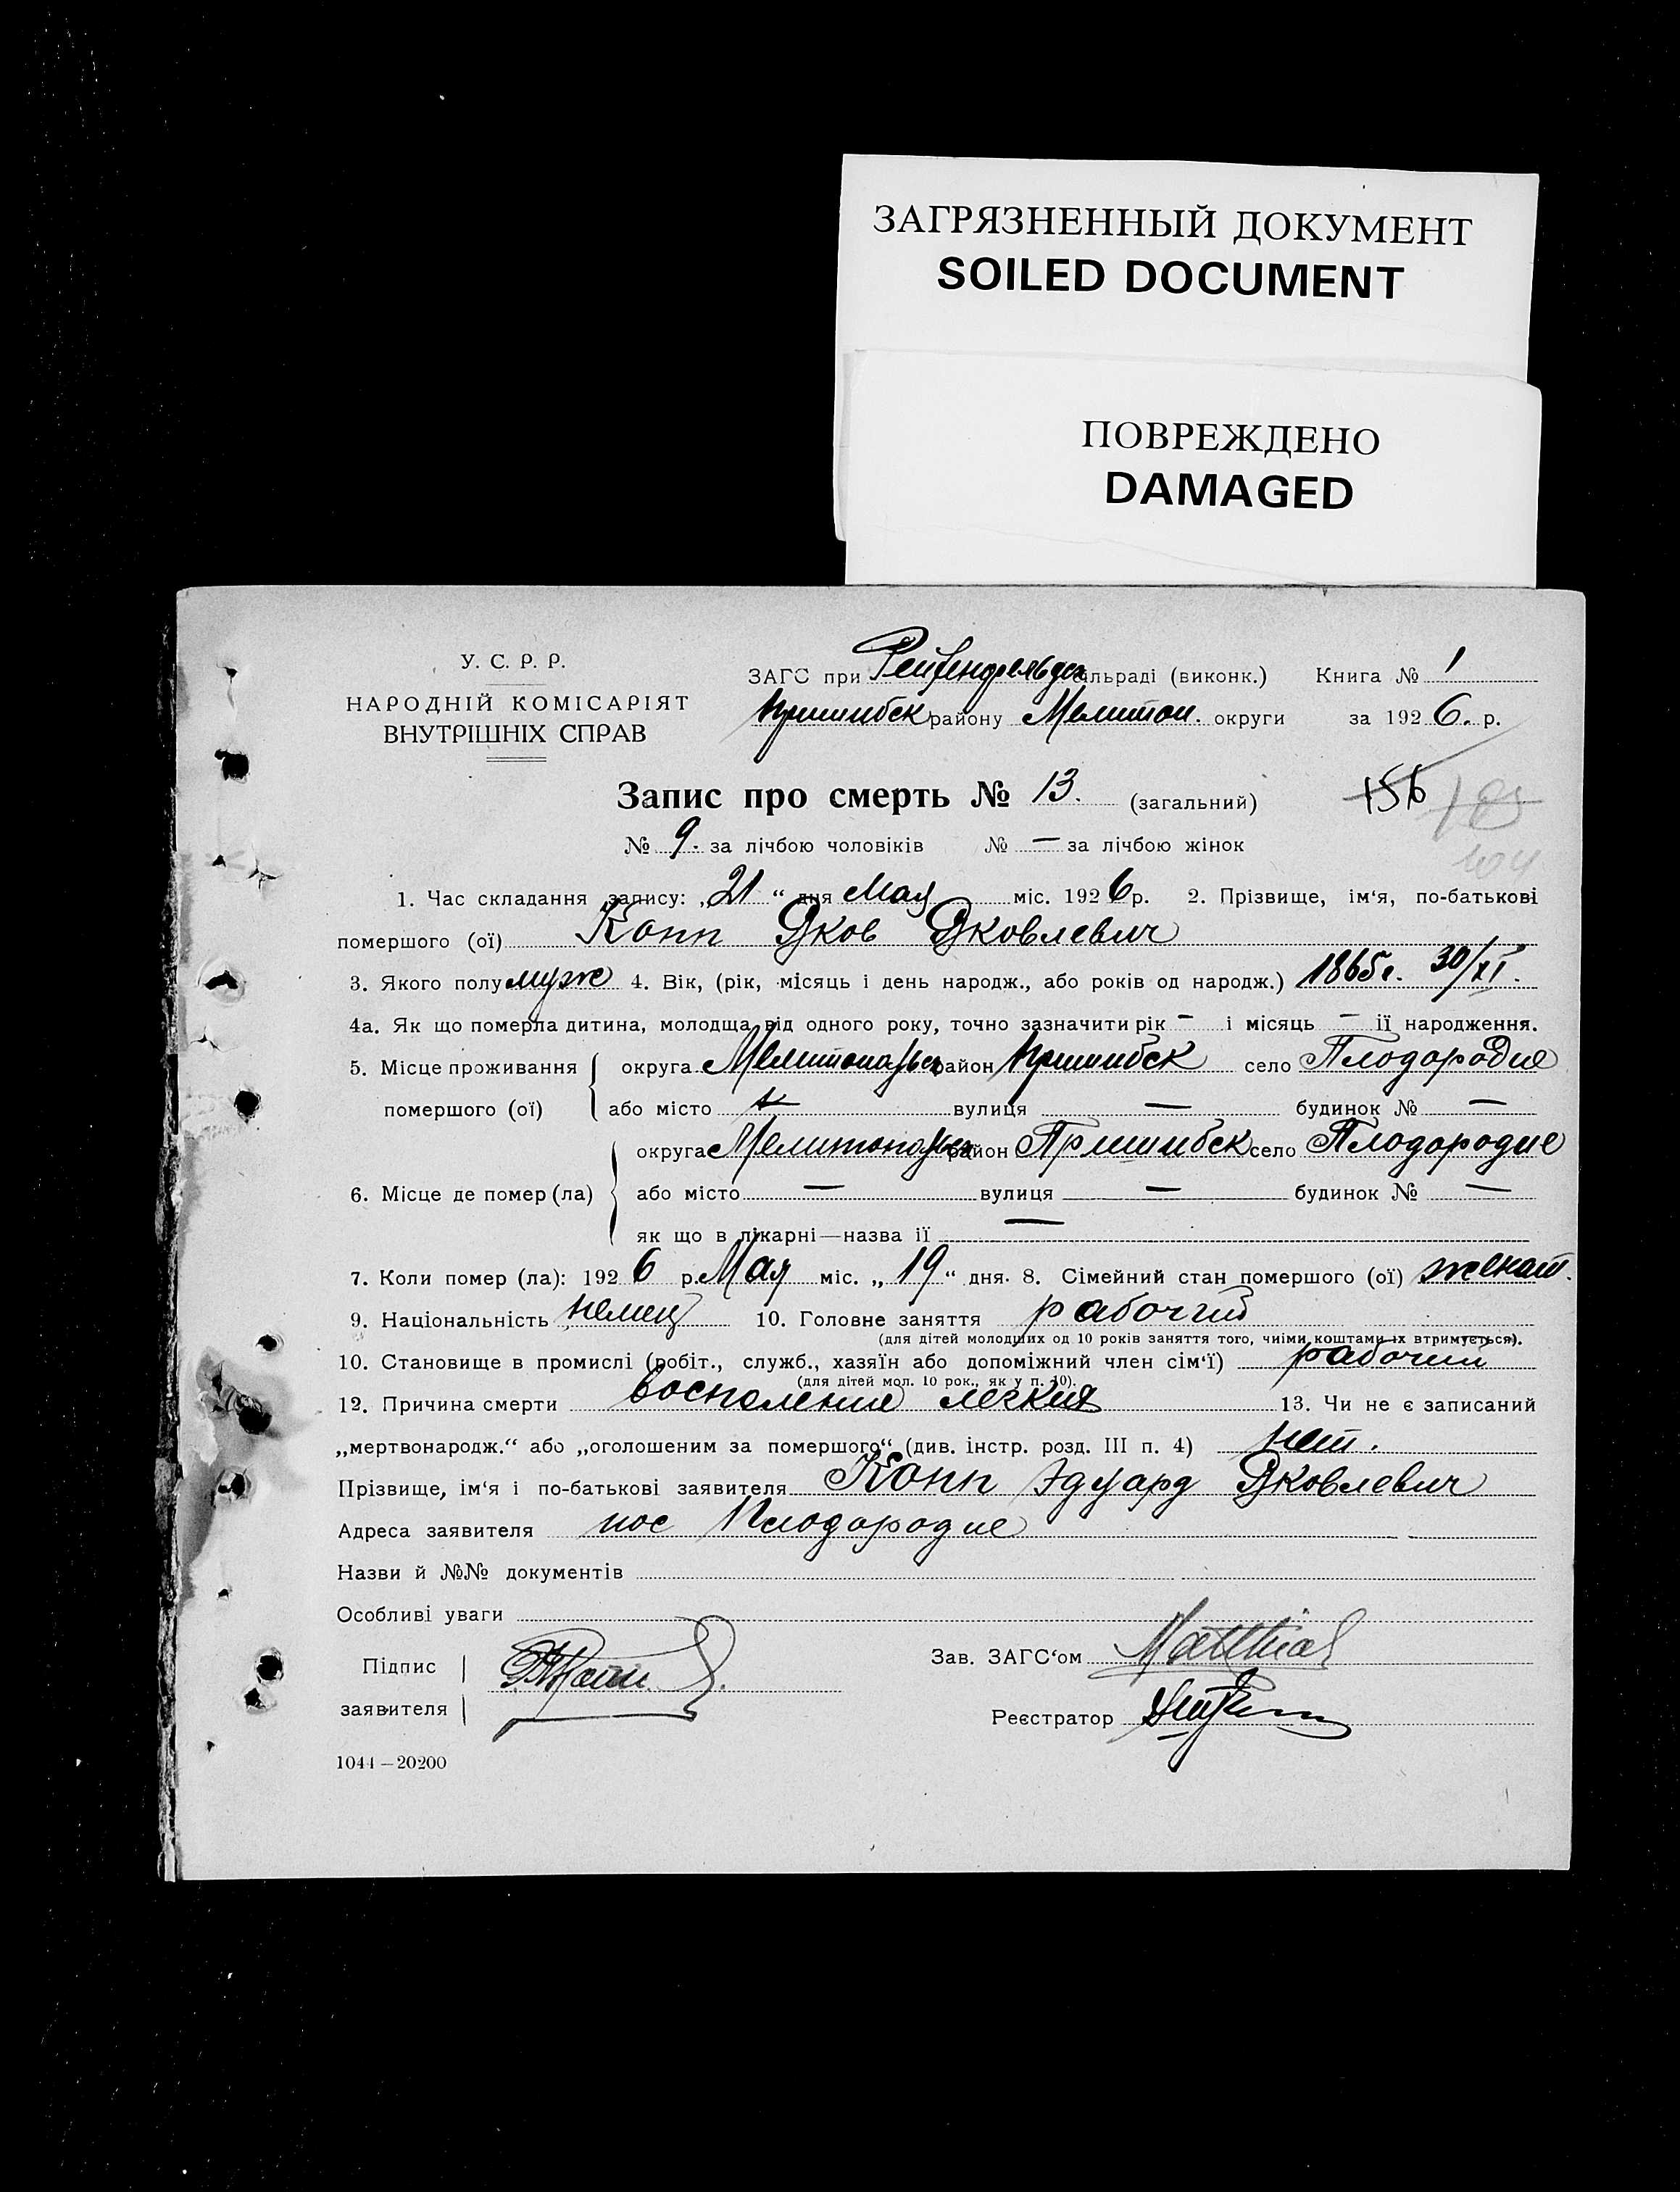 ЗАГРЯЗНЕННЫЙ ДОКУМЕНТ
SOILED DOCUMENT
ПОВРЕЖДЕНО
DAMAGED
У. С. Р. Р.
НАРОДНІЙ КОМІСАРІЯТ
ВНУТРІШНІХ СПРАВ
ЗАГС при Рейхенфельдс сільраді (виконк.) Книга № 1
Пришибск району Мелитоп. округи за 1926. р.
Запис про смерть № 13. (загальний) 156
№ 9. за лічбою чоловіків № — за лічбою жінок
104
1. Час складання запису: „21“ дня Мая міс. 1926 р. 2. Прізвище, ім‘я, по-батькові
помершого (ої) Копп Яков Яковлевич
3. Якого полу муж 4. Вік, (рік, місяць і день народж., або років од народж.) 1865 г. 30/XI.
4а. Як що померла дитина, молодща від одного року, точно зазначити рік - і місяць — її народження.
5. Місце проживання округа Мелитопольс район Пришибск село Плодородие
помершого (ої) або місто вулиця — будинок № —
округа Мелитопольс район Пришибск село Плодородие
6. Місце де помер (ла) або місто — вулиця — будинок № —
як що в лікарні—назва її —
7. Коли помер (ла): 1926 р. Мая міс. „19“ дня. 8. Сімейний стан помершого (ої) женат.
9. Національність немец 10. Головне заняття рабочий
(для дітей молодших од 10 років заняття того, чиїми коштами їх втримується).
10. Становище в промислі (робіт., служб., хазяїн або допоміжний член сім‘ї) рабочий
(для дітей мол. 10 рок., як у п. 10).
12. Причина смерти воспаление легких 13. Чи не є записаний
„мертвонародж.“ або „оголошеним за помершого“ (див. інстр. розд. III п. 4) нет.
Прізвище, ім‘я і по-батькові заявителя Копп Эдуард Яковлевич
Адреса заявителя пос Плодородие
Назви й №№ документів
Особливі уваги
Підпис
заявителя
Зав. ЗАГС‘ом Matthias
Реєстратор
1044—20200